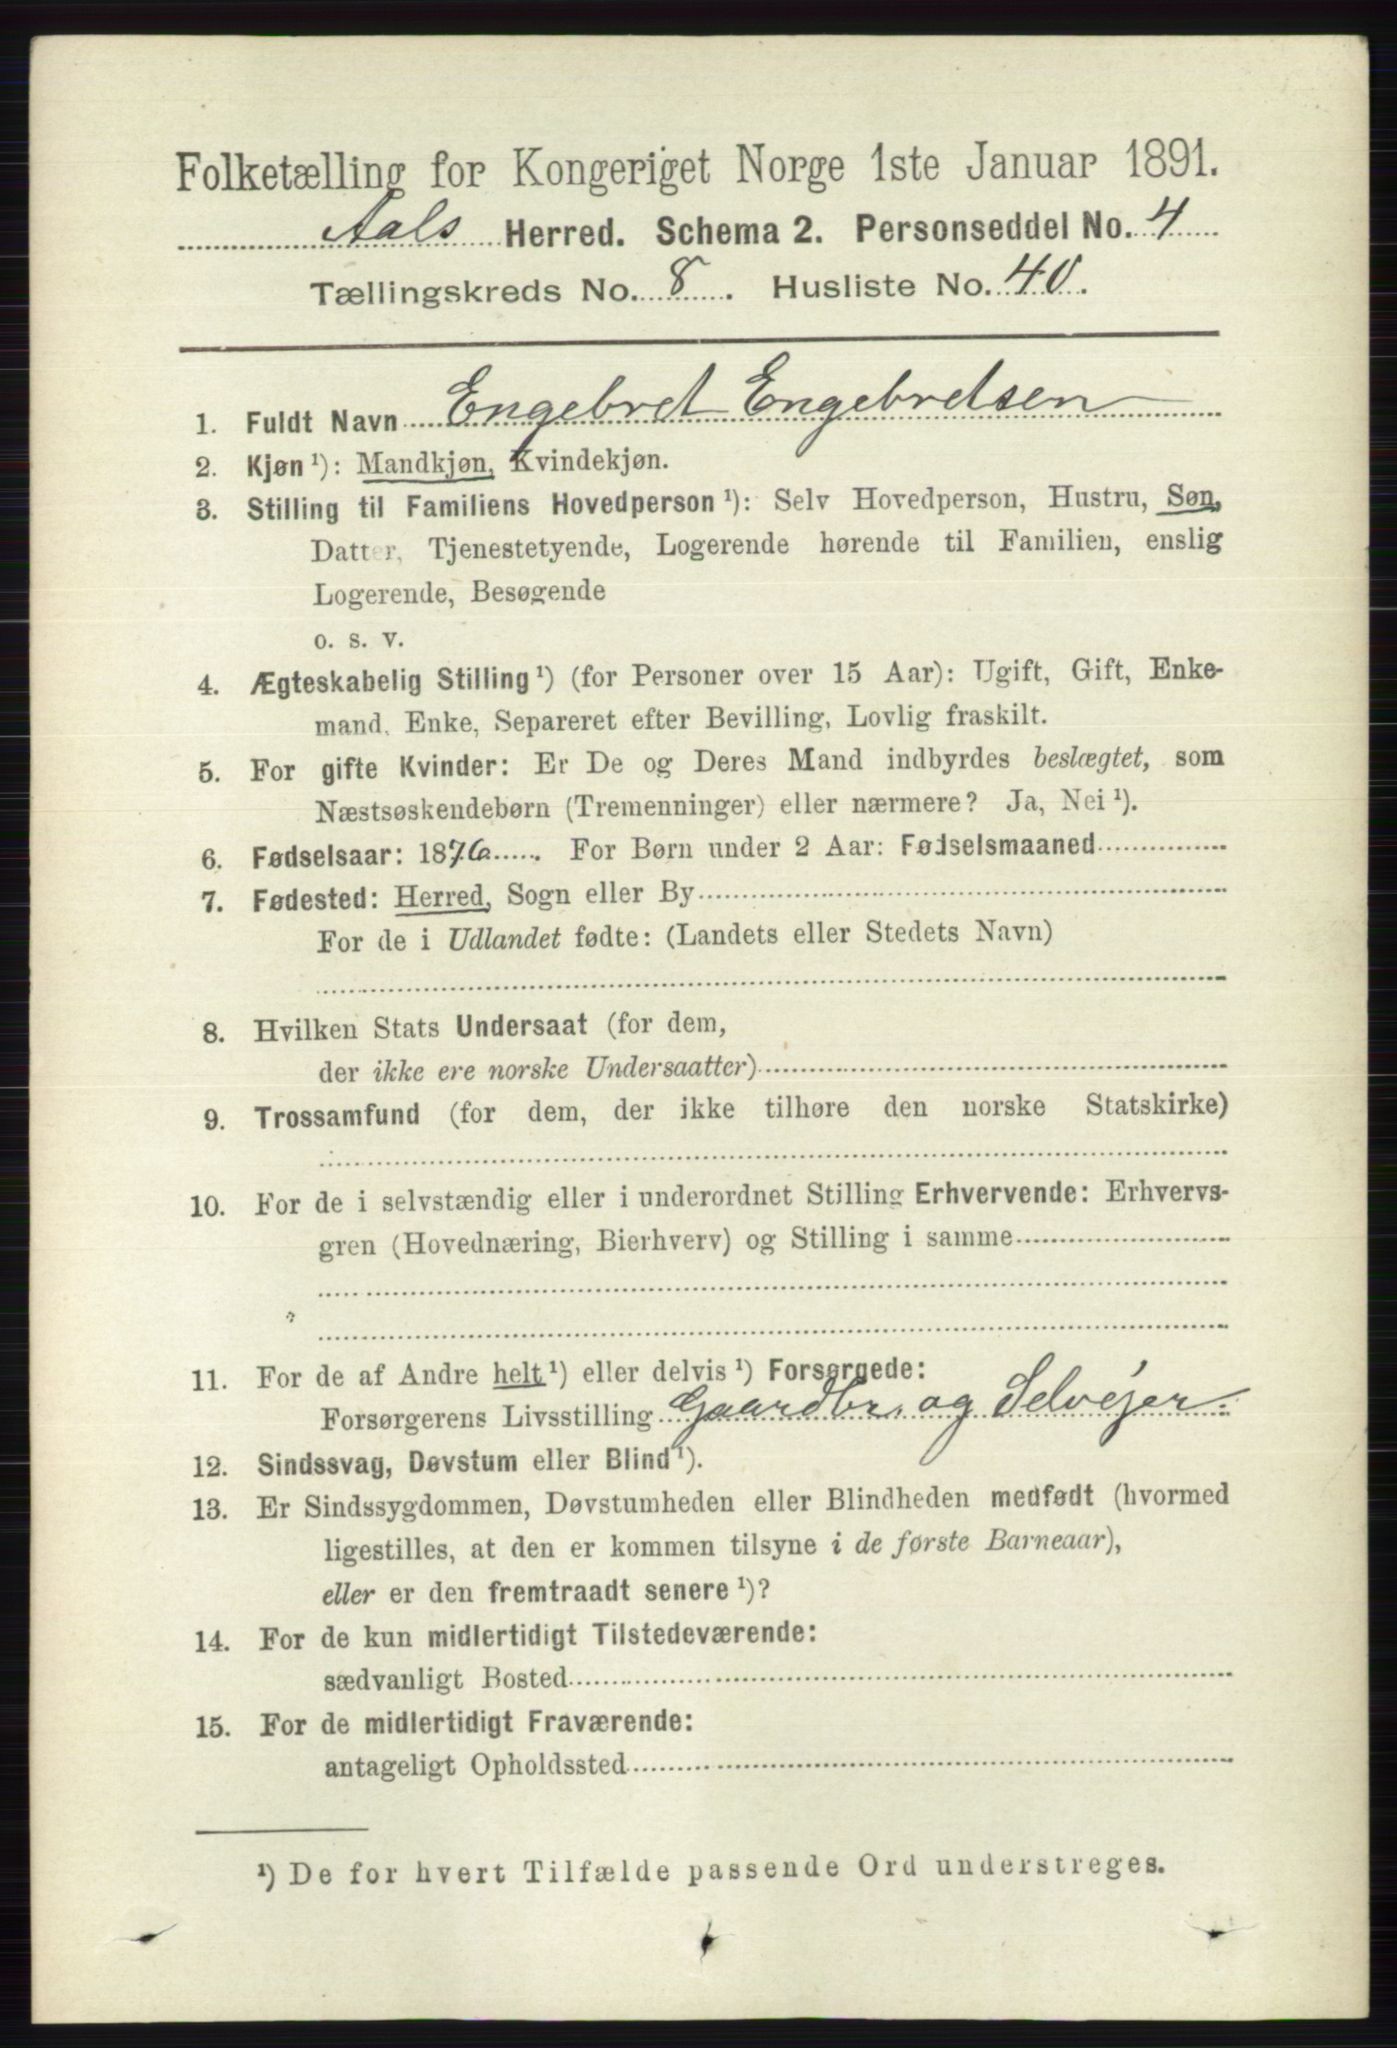 Folketælling for Kongeriget Norge 1ste Januar 1891.
Aals Herred. Schema 2. Personseddel No. 4
Tællingskreds No. 8. Husliste No. 40.
1. Fuldt Navn Engebret Engebretsen
2. Kjøn ¹): Mandkjøn, Kvindekjøn.
3. Stilling til Familiens Hovedperson ¹): Selv Hovedperson, Hustru, Søn,
Datter, Tjenestetyende, Logerende hørende til Familien, enslig
Logerende, Besøgende
o. s. v.
4. Ægteskabelig Stilling ¹) (for Personer over 15 Aar): Ugift, Gift, Enke-
mand, Enke, Separeret efter Bevilling, Lovlig fraskilt.
5. For gifte Kvinder: Er De og Deres Mand indbyrdes beslægtet, som
Næstsøskendebørn (Tremenninger) eller nærmere? Ja, Nei ¹).
6. Fødselsaar: 1876. For Børn under 2 Aar: Fødselsmaaned
7. Fødested: Herred, Sogn eller By
For de i Udlandet fødte: (Landets eller Stedets Navn)
8. Hvilken Stats Undersaat (for dem,
der ikke ere norske Undersaatter)
9. Trossamfund (for dem, der ikke tilhøre den norske Statskirke)
10. For de i selvstændig eller i underordnet Stilling Erhvervende: Erhvervs-
gren (Hovednæring, Bierhverv) og Stilling i samme
11. For de af Andre helt ¹) eller delvis ¹) Forsørgede:
Forsørgerens Livsstilling Gaardbr. og Selvejer.
12. Sindssvag, Døvstum eller Blind ¹).
13. Er Sindssygdommen, Døvstumheden eller Blindheden medfødt (hvormed
ligestilles, at den er kommen tilsyne i de første Barneaar),
eller er den fremtraadt senere ¹)?
14. For de kun midlertidigt Tilstedeværende:
sædvanligt Bosted
15. For de midlertidigt Fraværende:
antageligt Opholdssted
¹) De for hvert Tilfælde passende Ord understreges.